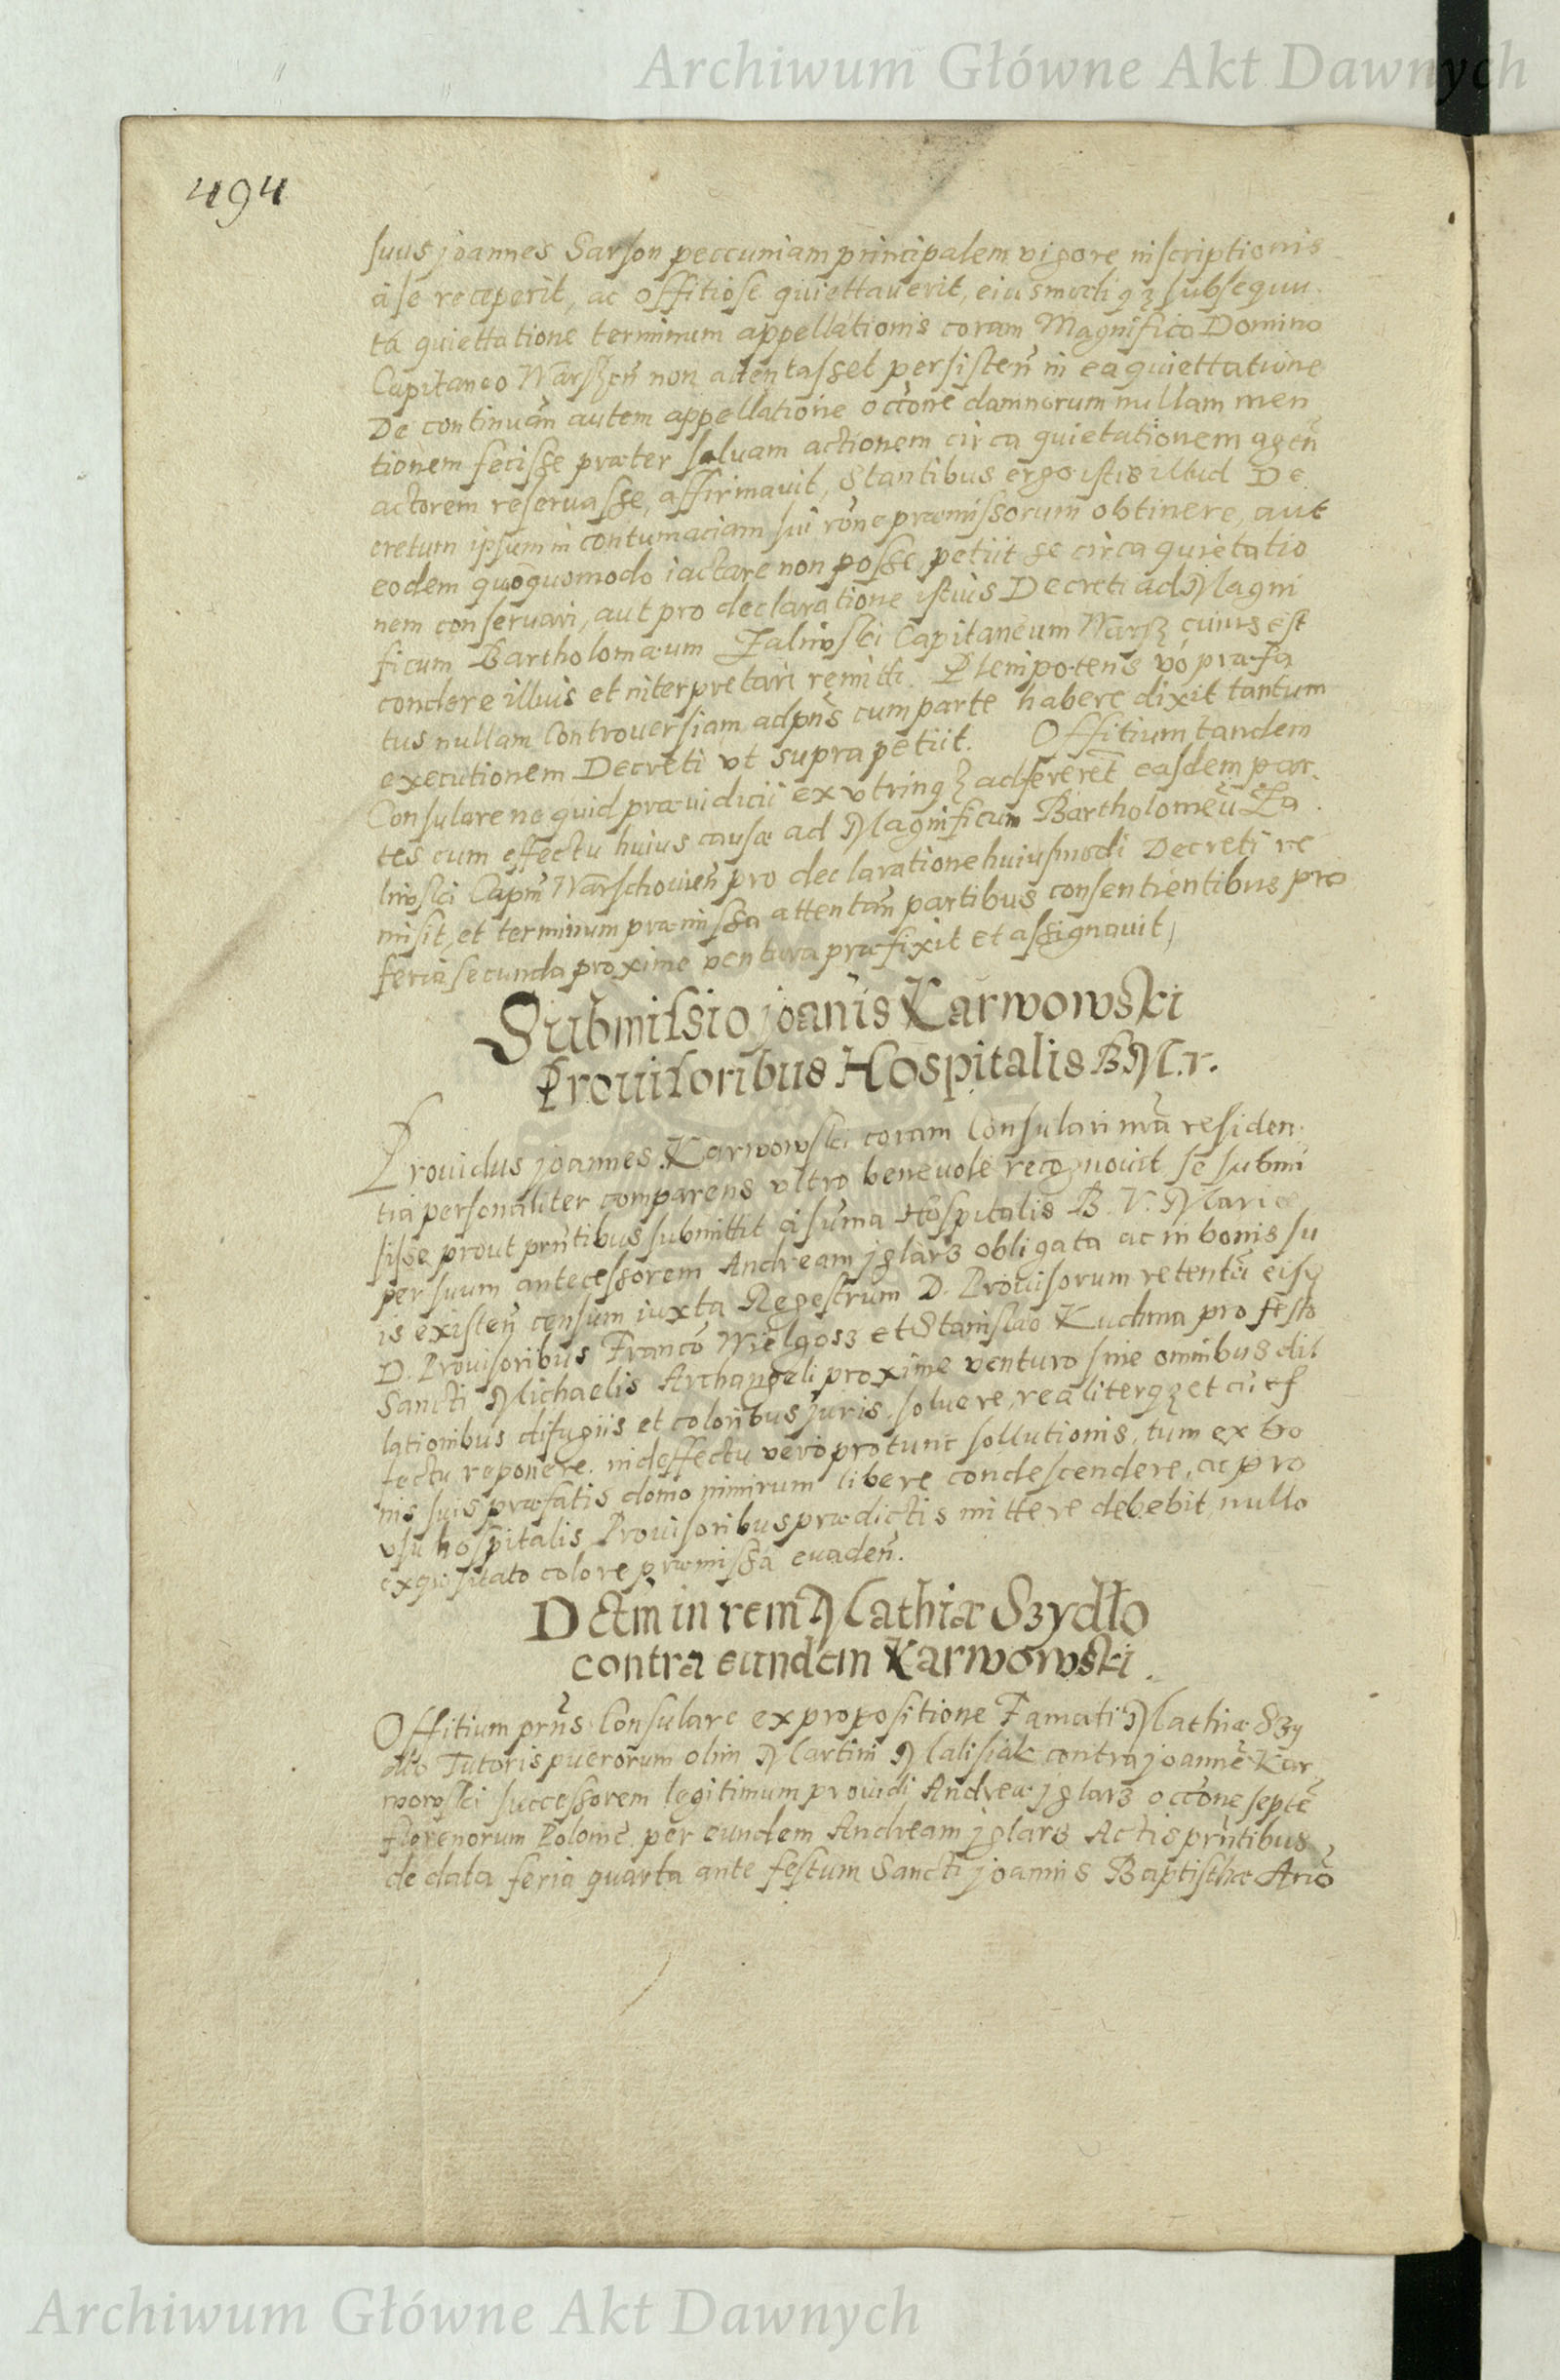 Archiwum Główne Akt Dawnych
494
suus joannes Sarson peccuniam principalem vigore inscriptionis
a se receperit, ac offitiose quiettaverit, eiusmodi qz subsequu
ta quiettatione terminum appellationis coram Magnifico Domino
Capitaneo Warszen̄ non attentasset persisten̄ in ea quiettatione
De continuan̄ autem appellatione occōne damnorum nullam men
tionem fecisse præter salvam actionem circa quietationem agen̄
actorem reservasse, affirmavit, Stantibus ergo istis illud De
cretum ipsum in contumaciam sui rōne præmissorum obtinere, aut
eodem quōquomodo iactare non posse, petiit se circa quietatio
nem conservari, aut pro declaratione istius Decreti ad Magni
ficum Bartholomæum Zaliwski Capitaneum Warsz cuius est
condere illius et interpretari remitti. Plenipotens vō præfa
tus nullam Controversiam ad pn̄s cum parte habere dixit tantum
executionem Decreti vt supra petiit. Offitium tandem
Consulare ne quid prævidicii ex vtrinqz adfereret easdem par
tes cum effectu huius causæ ad Magnificum Bartholomeū Za
liwski Capn̄ Warschovien̄ pro declaratione huiusmodi Decreti re
misit, et terminum præmissa attentan̄ partibus consentientibus pro
feria secunda proxime ventura præfixit et assignavit,
Submissio joanīs Karwowski
Provisoribus Hospitalis B M. v.
Providus joannes Karwowski coram Consulari nrā residen
tia personaliter comparens vltro benevole recognovit se submi
sisse prout prn̄tibus submittit a sum̄a Hospitalis B. V. Mariæ
per suum antecessorem Andream jglarz obligata ac in bonis su
is existen̄ censum iuxta Regestrum D. Provisorum retentū eisq
D. Provisoribus Francō Wielgosz et Stanislao Kuchna pro festo
Sancti Michaelis Archangeli proxime venturo sine omnibus dil
lationibus difugiis et coloribus juris, solvere, realiterqz et cū ef
fectu reponere. in deffectu vero protunc sollutionis, tum ex bo
nis suis præfatis domo nimirum libere condescendere, ac pro
vsu hospitalis Provisoribus prædictis mittere debebit, nullo
exquisitato colore præmissa evaden̄.
Dctm in rem Mathiæ Szydło
contra eundem Karwowski.
Offitium prn̄s Consulare ex propositione Famati Mathiæ Szy
dło Tutoris puerorum olim Martini Malisiak contra joannē Kar
wowski successorem legitimum providi Andreæ jglarz occōne septē
florenorum Polonic̄. per eundem Andream jglarz Actis prn̄tibus
de data feria quarta ante festum Sancti joannis Baptisthæ Anō
Archiwum Główne Akt Dawnych